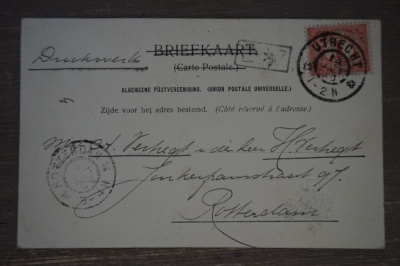 Drukwerk
BRIEFKAART
(Carte Postale.)
UTRECHT
1-2 N
ALGEMEENE POSTVEREENIGING. (UNION POSTALE UNIVERSELLE.)
Zijde voor het adres bestemd. (Côté réservé à l'adresse.)
Verhegt H. Verhegt
97.
ROTTERDAM
Rotterdam